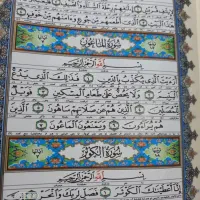 ٱلَّذِىٓ أَطْعَمَهُم مِّن جُوعٍ وَءَامَنَهُم مِّنْ خَوْفٍ
سُورَةُ الْمَاعُونِ
بِسْمِ ٱللَّهِ ٱلرَّحْمَٰنِ ٱلرَّحِيمِ
أَرَءَيْتَ ٱلَّذِى يُكَذِّبُ بِٱلدِّينِ ١ فَذَٰلِكَ ٱلَّذِى يَدُعُّ
ٱلْيَتِيمَ ٢ وَلَا يَحُضُّ عَلَىٰ طَعَامِ ٱلْمِسْكِينِ ٣ فَوَيْلٌ
لِّلْمُصَلِّينَ ٤ ٱلَّذِينَ هُمْ عَن صَلَاتِهِمْ سَاهُونَ ٥ ٱلَّذِينَ
هُمْ يُرَآءُونَ ٦ وَيَمْنَعُونَ ٱلْمَاعُونَ ٧
سُورَةُ الْكَوْثَرِ
بِسْمِ ٱللَّهِ ٱلرَّحْمَٰنِ ٱلرَّحِيمِ
إِنَّآ أَعْطَيْنَٰكَ ٱلْكَوْثَرَ ١ فَصَلِّ لِرَبِّكَ وَٱنْحَرْ ٢